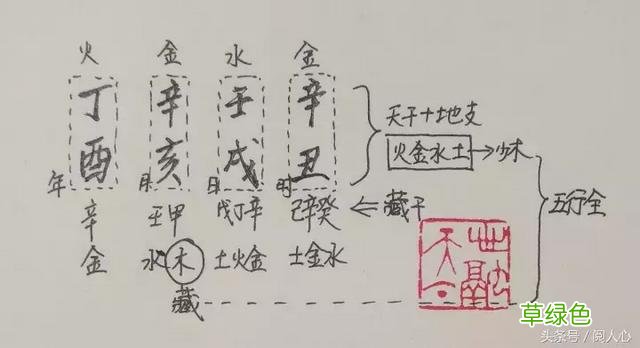 火 金 水 金
丁 辛 壬 辛 天干+地支
酉 亥 戌 丑 火金水土→少木
年 月 日 时 五行全
辛 壬甲 戊丁辛 己辛癸 ⇐藏干
金 水木 土火金 土金水
藏
草绿色
头条号/阅人心